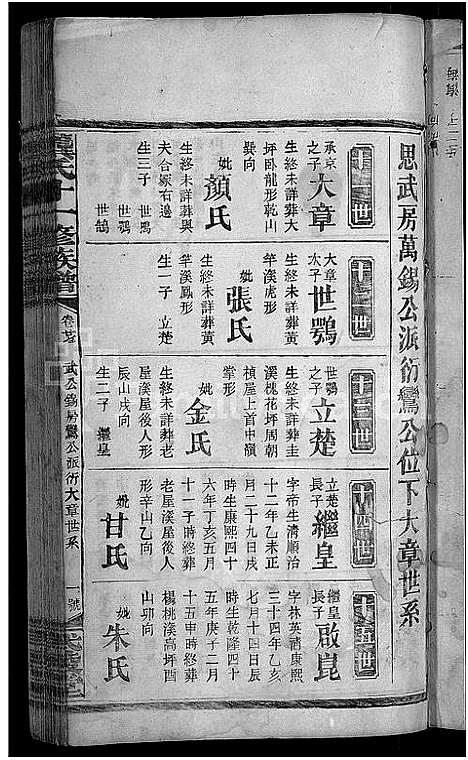 思武房萬錫公派衍鸞公位下大章世系
十一世
承京之子
大章
生終未詳葬大
坪臥龍形乾山
巽向
妣
顏氏
生終未詳葬與
夫合冢右邊
生三子
世鶚
世鵠
十二世
大章太子
世鶚
生終未詳葬黃
竿溪虎形
妣
張氏
生終未詳葬黃
竿溪鳳形
生一子
立楚
十三世
世鶚之子
立楚
生終未詳葬圭
溪槐花坪周朝
楨屋上首中嶺
掌形
妣
金氏
生終未詳葬老
屋溪屋後人形
辰山戌向
生二子
繼皇
十四世
立楚長子
繼皇
字帝生清順治
十二年乙未正
月二十九日戌
時生康熙四十
六年丁亥五月
十一子時終葬
老屋溪屋後人
形辛山乙向
妣
甘氏
十五世
繼皇長子
啟崑
字林英清康熙
三十四年乙亥
七月十四日辰
時生乾隆四十
五年庚子二月
十五申時終葬
楊桃溪高坪酉
山卯向
妣
朱氏
氏十一修族譜
武公錫房鸞公派衍大章世系
一號